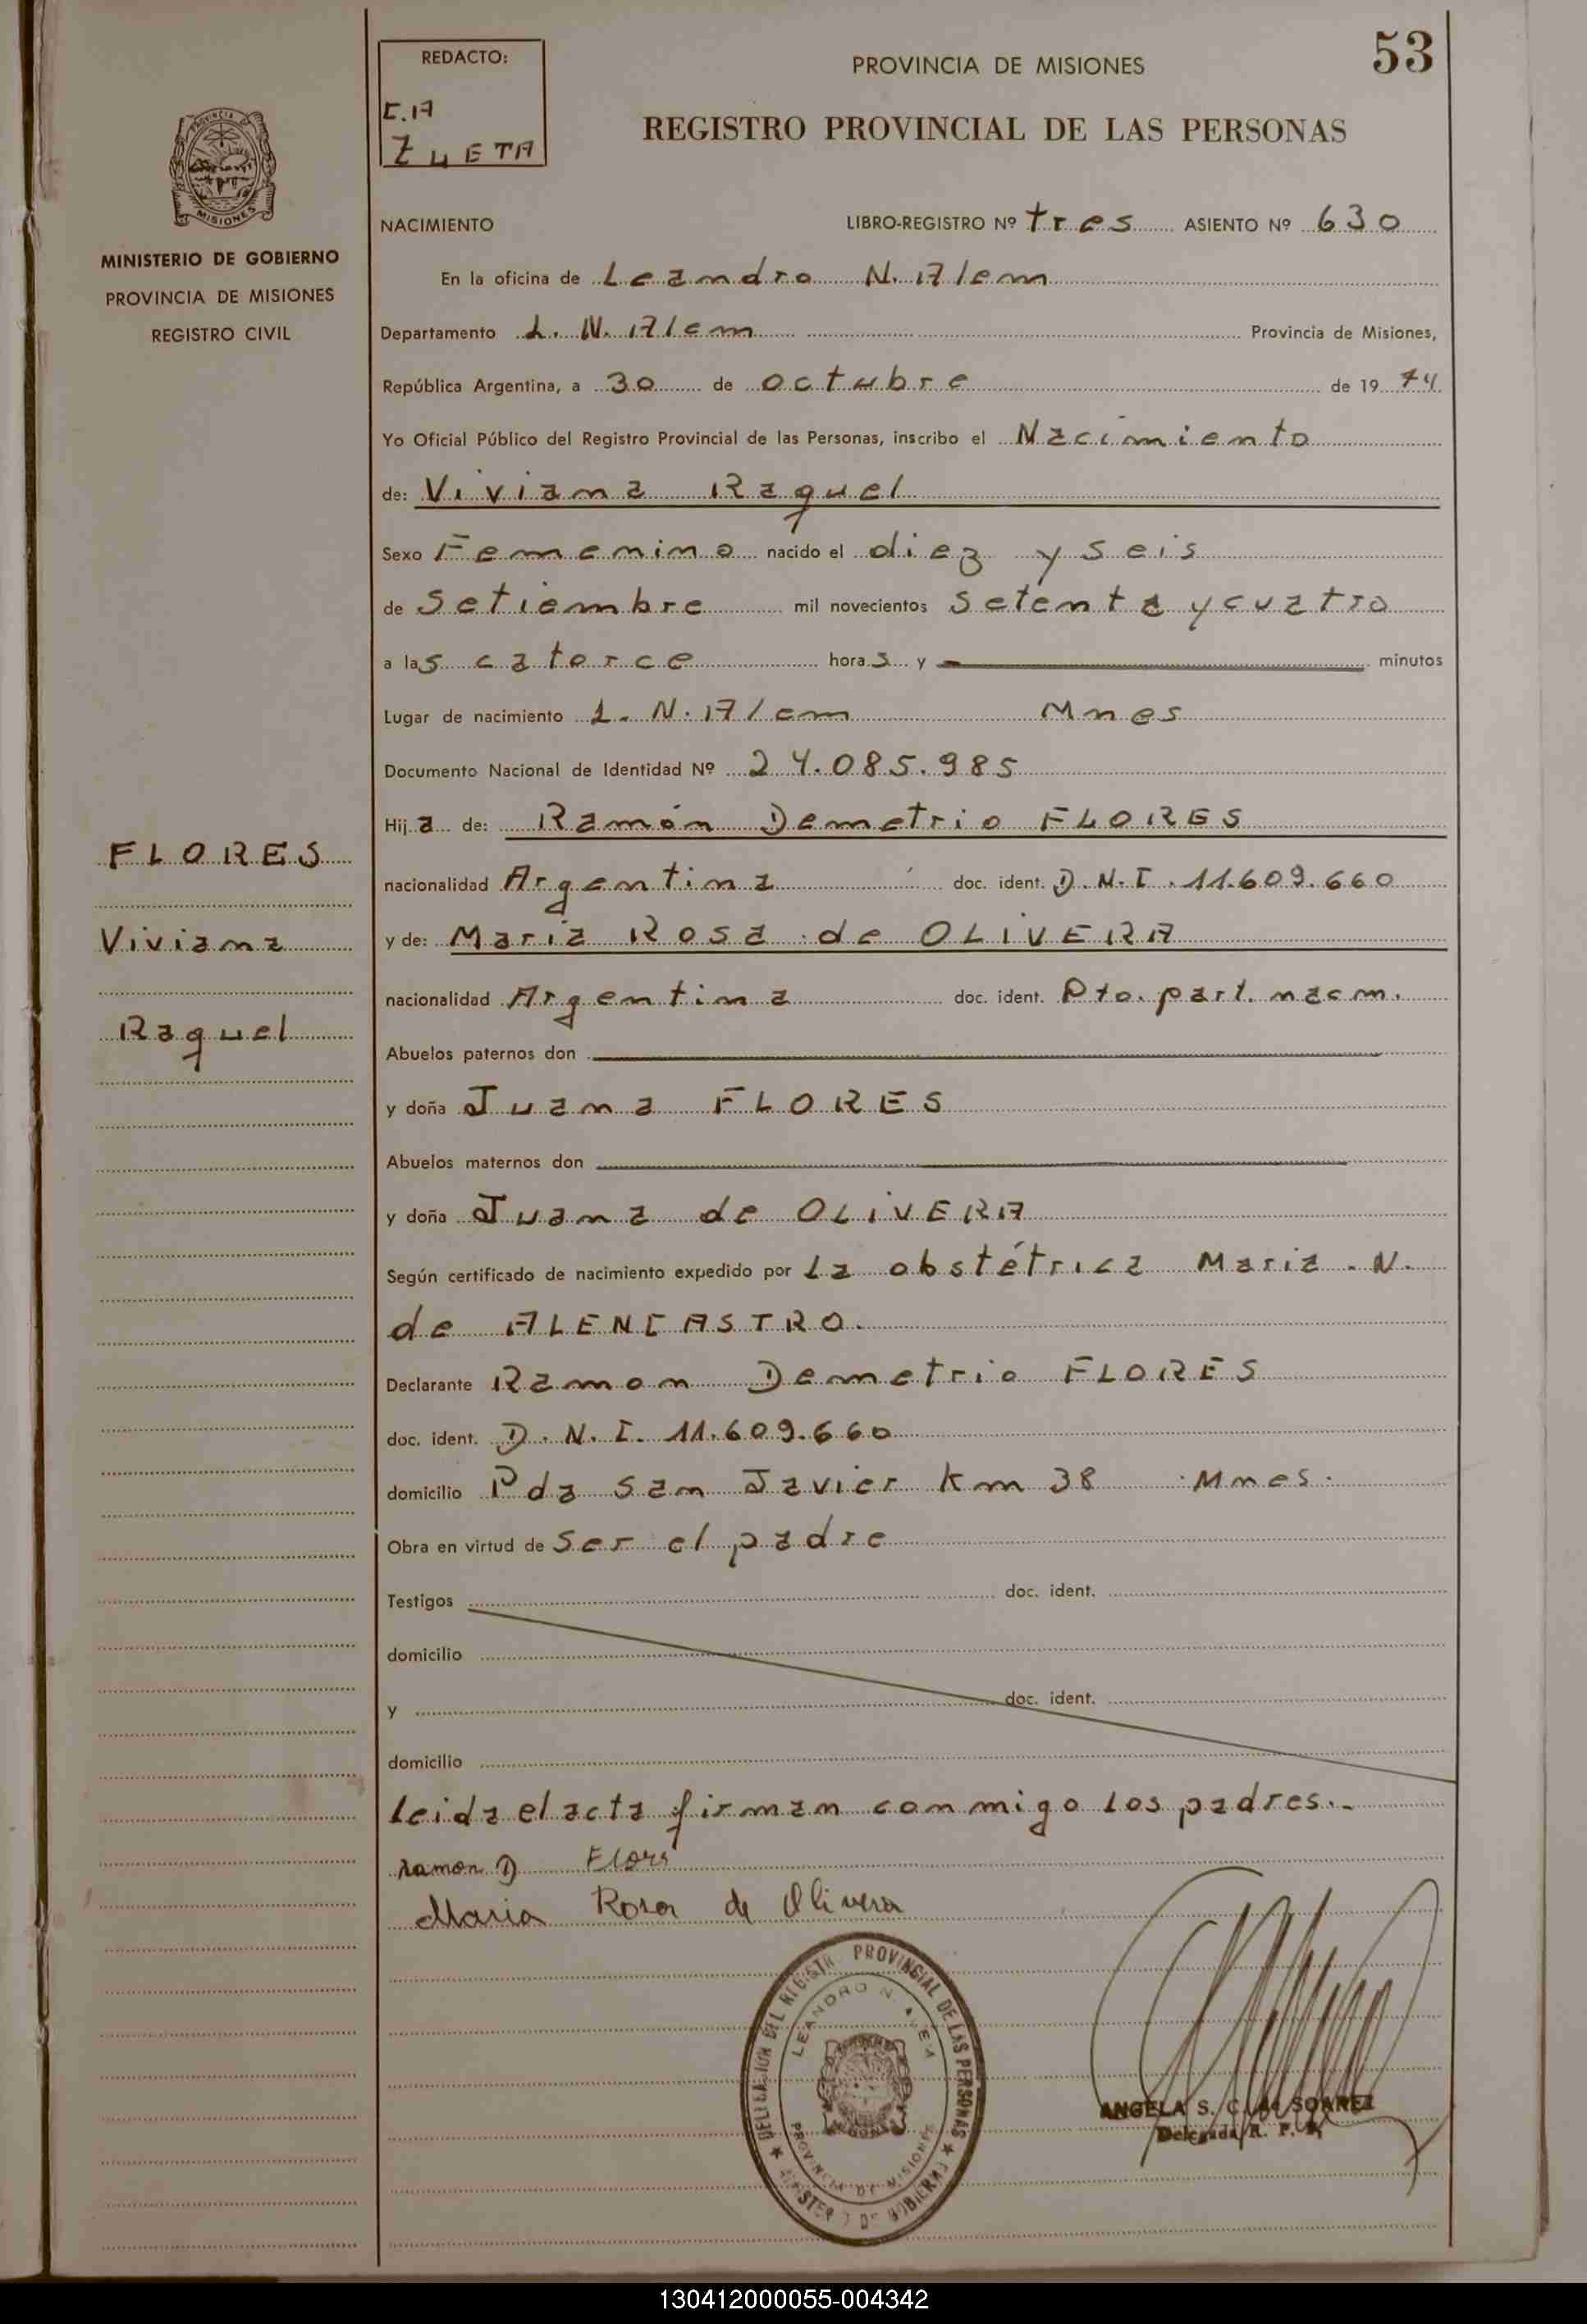 53
REDACTO:
C.A
ZUETA
PROVINCIA DE MISIONES
REGISTRO PROVINCIAL DE LAS PERSONAS
PROVINCIA
MISIONES
MINISTERIO DE GOBIERNO
PROVINCIA DE MISIONES
REGISTRO CIVIL
FLORES
Viviana
Raquel
NACIMIENTO LIBRO-REGISTRO Nº tres ASIENTO Nº 630
En la oficina de Leandro N. Alem
Departamento L. N. Alem Provincia de Misiones,
República Argentina, a 30 de octubre de 1974
Yo Oficial Público del Registro Provincial de las Personas, inscribo el Nacimiento
de: Viviana Raquel
Sexo Femenino nacido el diez y seis
de Setiembre mil novecientos Setenta y cuatro
a las catorce horas y — minutos
Lugar de nacimiento L. N. Alem Mnes
Documento Nacional de Identidad Nº 24.085.985
Hija de: Ramón Demetrio FLORES
nacionalidad Argentina doc. ident. D.N.I. 11.609.660
y de: Maria Rosa de OLIVERA
nacionalidad Argentina doc. ident. Pto. part. nacm.
Abuelos paternos don
y doña Juana FLORES
Abuelos maternos don
y doña Juana de OLiVERA
Según certificado de nacimiento expedido por La obstétrica Maria . N.
de ALENCASTRO.
Declarante Ramon Demetrio FLORES
doc. ident. D.N.I. 11.609.660
domicilio Pda San Javier Km 38 Mnes.
Obra en virtud de Ser el padre
Testigos doc. ident.
domicilio
y doc. ident.
domicilio
Leida el acta firman conmigo los padres.-
Ramon D Flores
Maria Rosa de Olivera
DELEGACION DEL REGISTR. PROVINCIAL DE LAS PERSONAS
LEANDRO N. ALEM
PROVINCIA DE MISIONES
MINISTERIO DE GOBIERNO
ANGELA S. C. de SOAREZ
Delegada R. P. P.
130412000055-004342